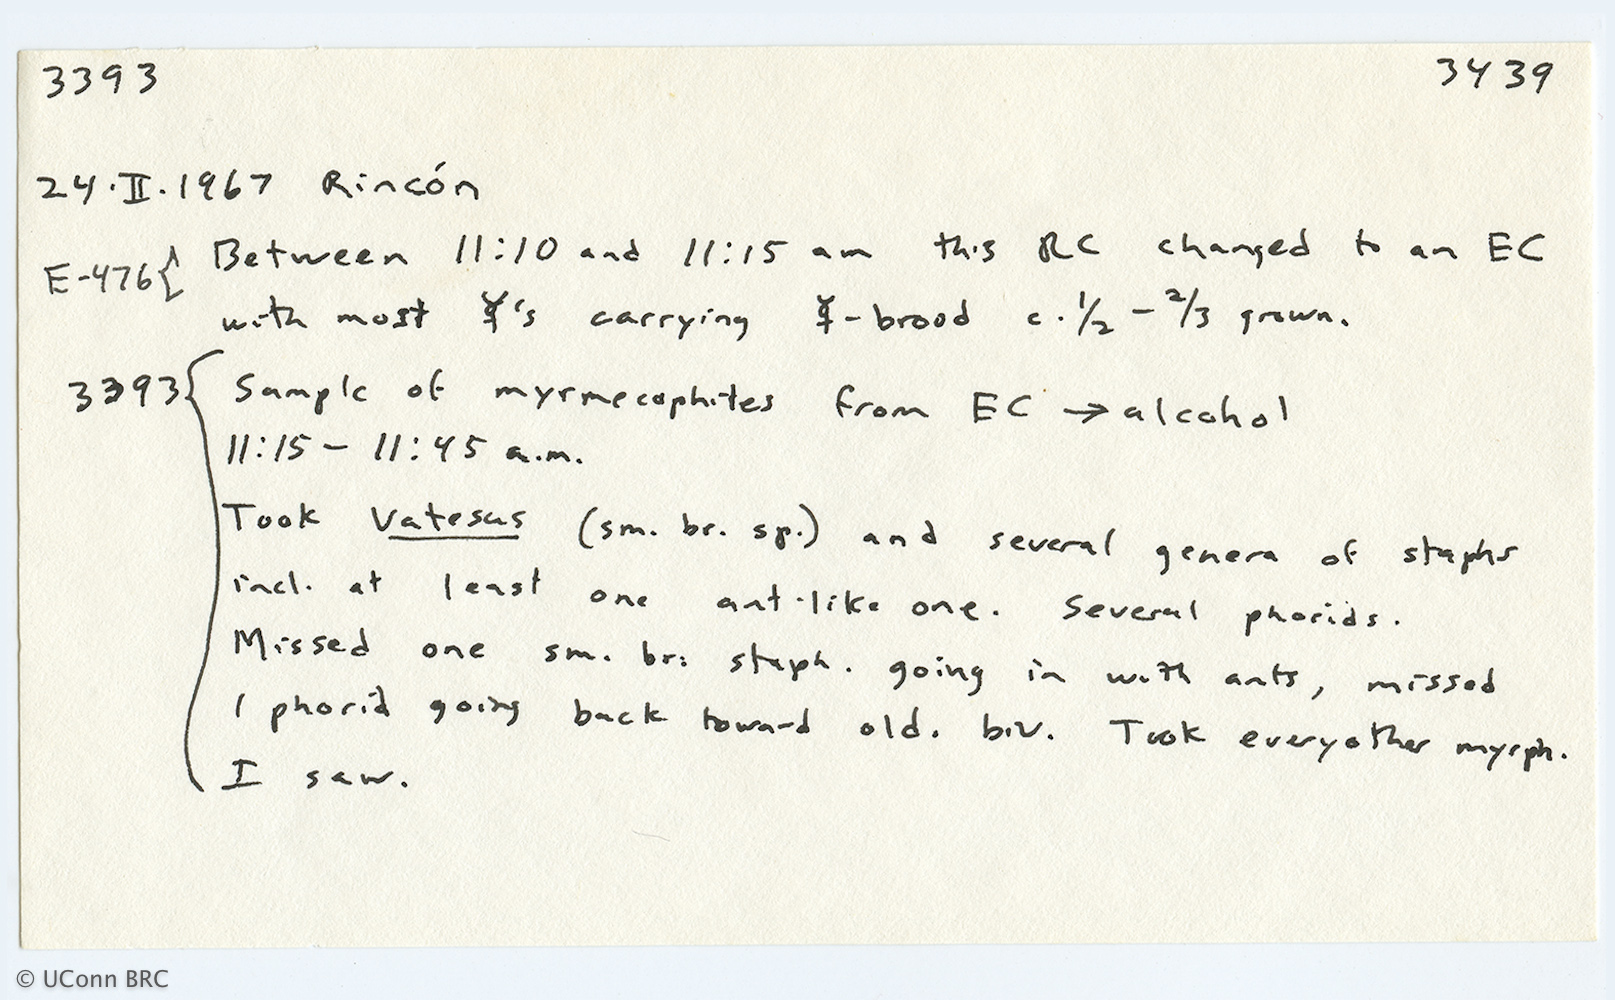 3393 3439
24.II.1967 Rincón
E-476{ Between 11:10 and 11:15 am this RC changed to an EC
with most ☿'s carrying ☿-brood c. 1/2 - 2/3 grown.
3393{ Sample of myrmecophiles from EC → alcohol
11:15 - 11:45 a.m.
Took Vatesus (sm. br. sp.) and several genera of staphs
incl. at least one ant-like one. Several phorids.
Missed one sm. br. staph. going in with ants, missed
1 phorid going back toward old. biv. Took every other myrph.
I saw.
© UConn BRC